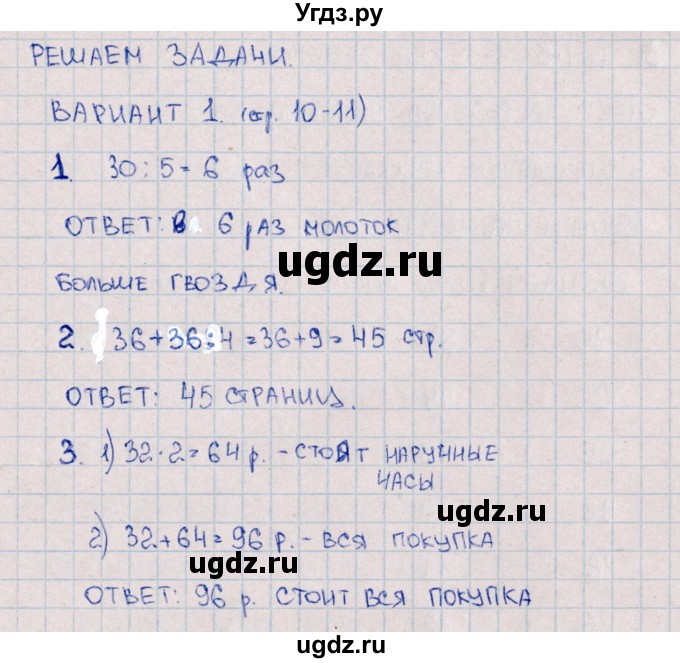 Угдз.ру
РЕШАЕМ ЗАДАЧИ.
ВАРИАНТ 1. (стр. 10-11)
1. 30 : 5 = 6 раз
ОТВЕТ: В 6 РАЗ МОЛОТОК
ugdz.ru
БОЛЬШЕ ГВОЗДЯ.
ugdz.ru
2. 36+36:4=36+9=45 стр.
ОТВЕТ: 45 СТРАНИЦ.
3. 1) 32·2=64 р. - СТОЯТ НАРУЧНЫЕ
ЧАСЫ
ugdz.ru
2) 32+64=96 р. - ВСЯ ПОКУПКА
ugdz.ru
ОТВЕТ: 96 р. СТОИТ ВСЯ ПОКУПКА
ugdz.ru